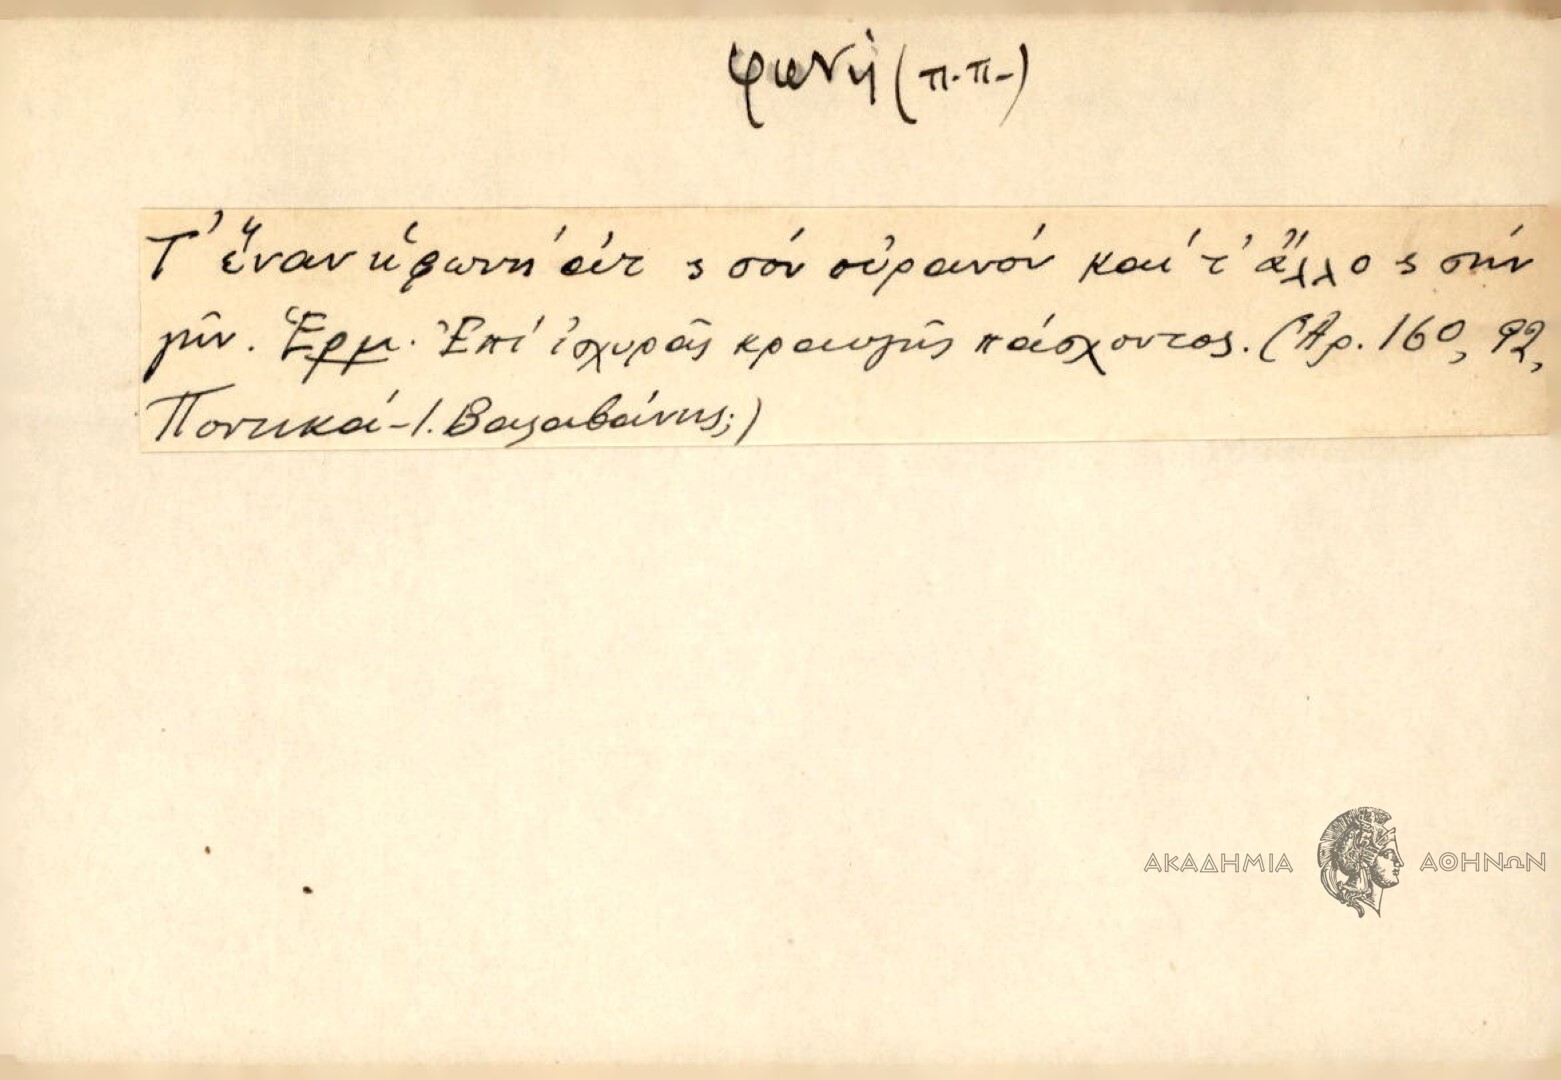 φωνή (π.π-)
Τ' ἕναν ἡ φωνή ἀτ ς σόν οὐρανόν καί τ' ἄλλο ς σήν
γῆν. Ἑρμ. Ἐπί ἰσχυρᾶς κραυγῆς πάσχοντος. (Ἀρ. 160, 92,
Ποντικά - Ι. Βαλαβάνης;)
ΑΚΑΔΗΜΙΑ ΑΘΗΝΩΝ